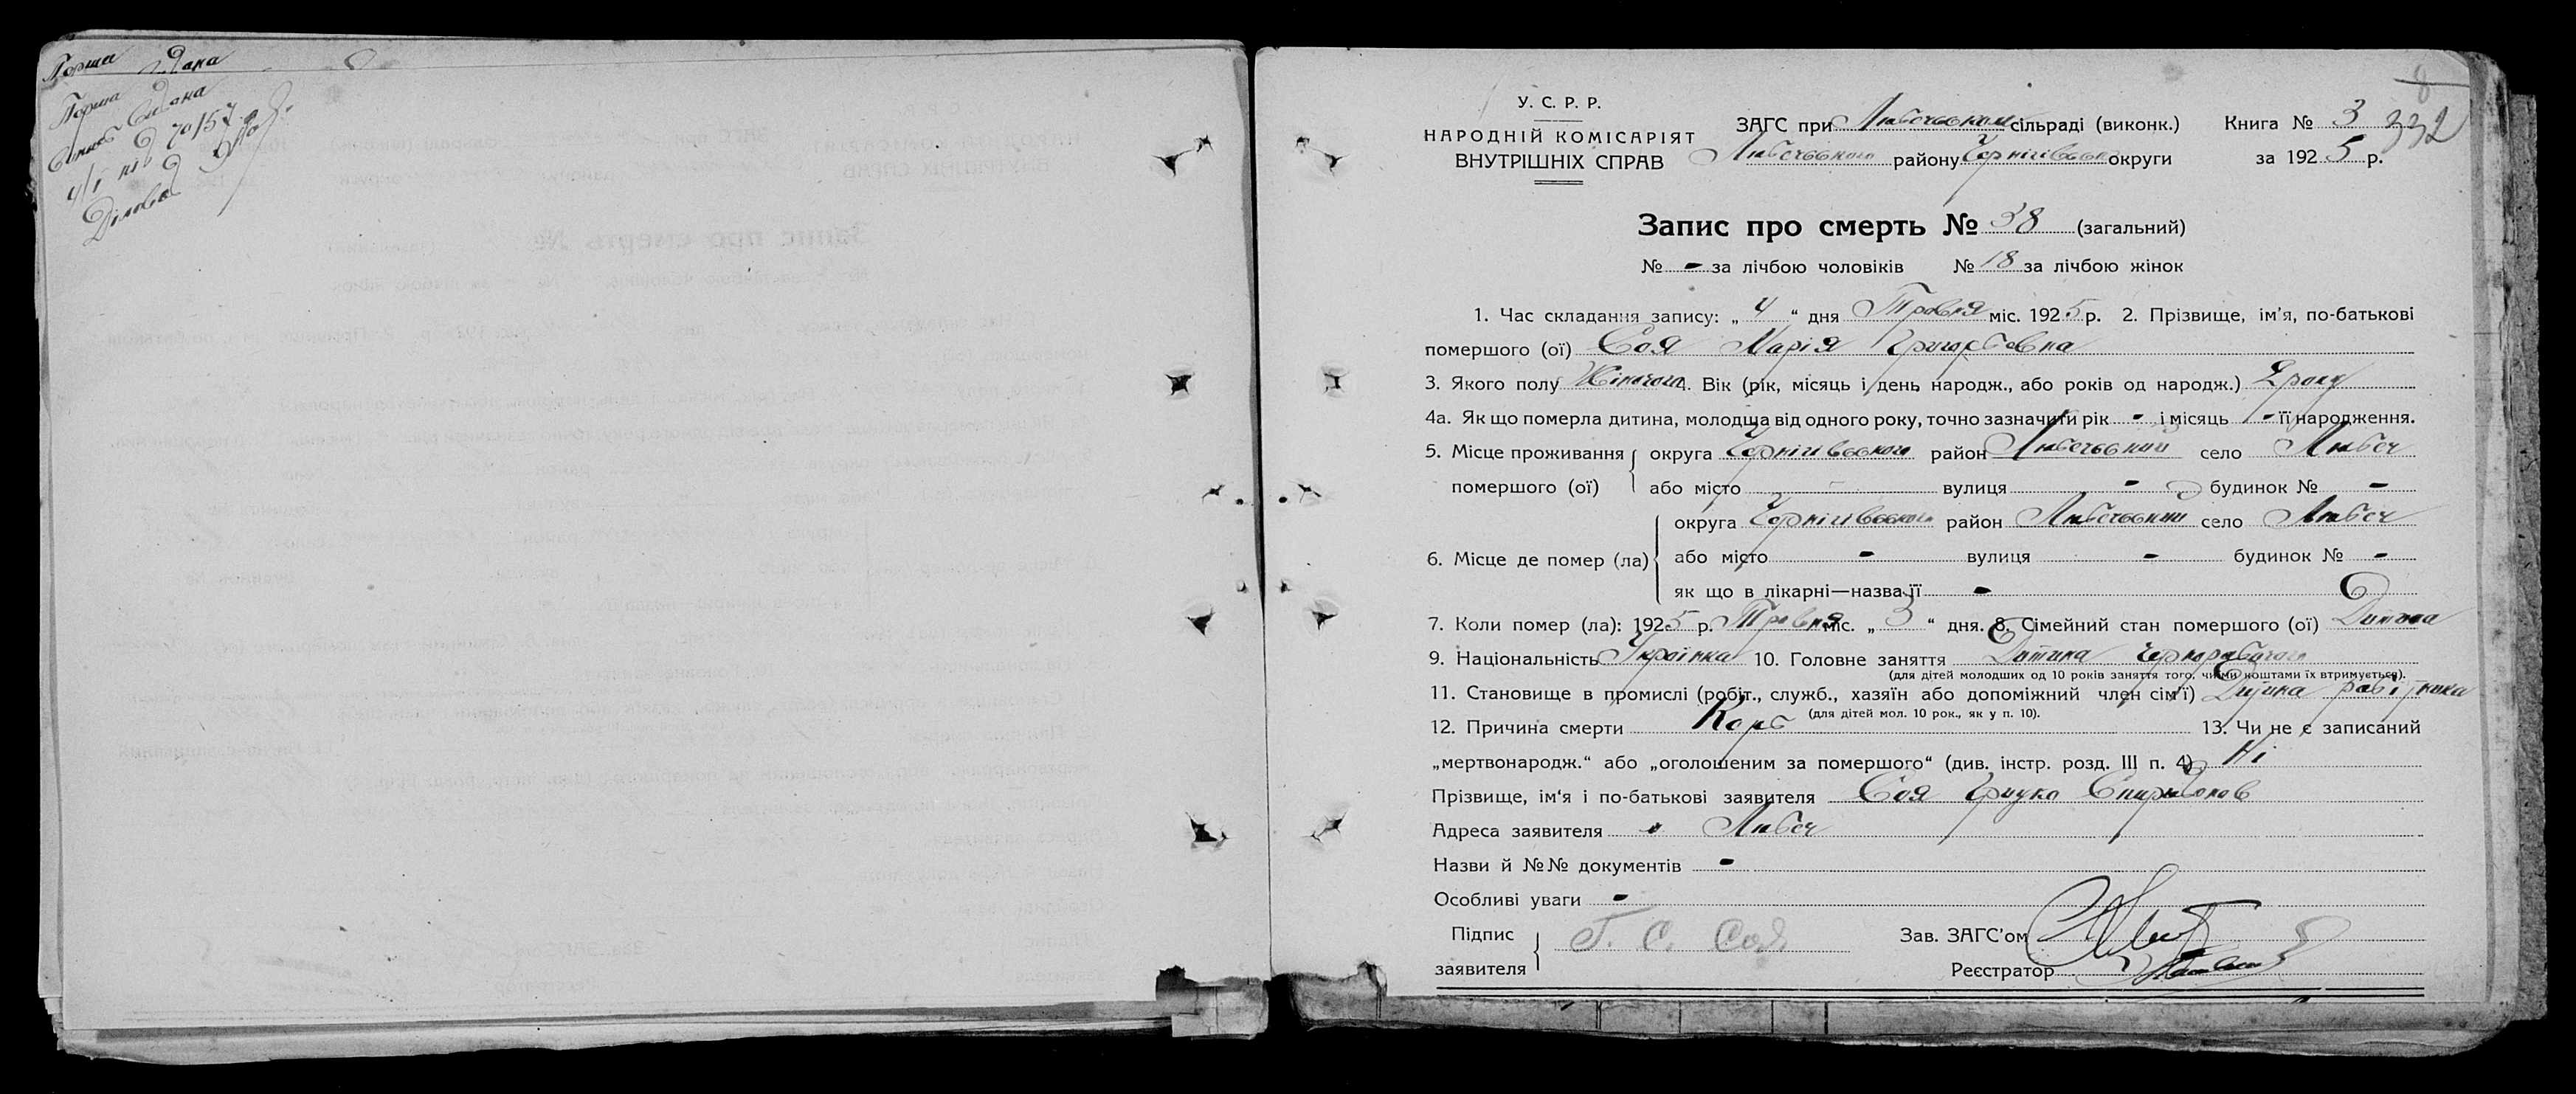 Порша Ѣдана
Порша
70/57
У. С. Р. Р.
НАРОДНІЙ КОМІСАРІЯТ
ВНУТРІШНІХ СПРАВ
ЗАГС при Любечському сільраді (виконк.) Книга № 3 332
Любечського району Чернігівської округи за 1925 р.
8
Запис про смерть № 38 (загальний)
№ - за лічбою чоловіків № 18 за лічбою жінок
1. Час складання запису: „4“ дня Травня міс. 1925 р. 2. Прізвище, ім'я, по-батькові
помершого (ої) Соя Марія Григорьевна
3. Якого полу Жіночого 4. Вік (рік, місяць і день народж., або років од народж.) 2 роки
4а. Як що померла дитина, молодша від одного року, точно зазначити рік - і місяць - її народження.
5. Місце проживання округа Чернігівського район Любечьский село Любеч
помершого (ої) або місто - вулиця - будинок № -
округа Чернігівського район Любечьский село Любеч
6. Місце де помер (ла) або місто - вулиця - будинок № -
як що в лікарні—назва її -
7. Коли помер (ла): 1925 р. Травня міс. „3“ дня. 8. Сімейний стан помершого (ої) Дитина
9. Національність Українка 10. Головне заняття Дитина чернорабочого
(для дітей молодших од 10 років заняття того, чиїми коштами їх втримується).
11. Становище в промислі (робіт., служб., хазяїн або допоміжний член сім'ї) Дитина робітника
(для дітей мол. 10 рок., як у п. 10).
12. Причина смерти Корь 13. Чи не є записаний
„мертвонародж.“ або „оголошеним за помершого“ (див. інстр. розд. III п. 4) Ні
Прізвище, ім'я і по-батькові заявителя Соя Грицко Спиридонов
Адреса заявителя Любеч
Назви й №№ документів -
Особливі уваги -
Підпис
заявителя Г. С. Соя
Зав. ЗАГС'ом
Реєстратор